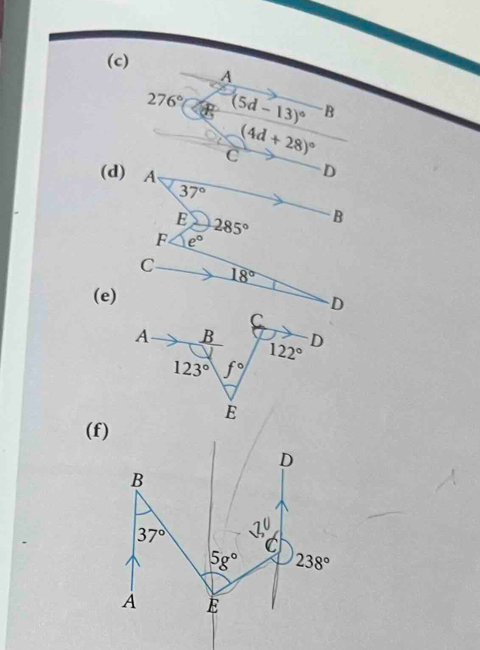 (c)
A
276° E (5d − 13)° B
(4d + 28)°
C
D
(d) A
37°
B
E 285°
F e°
C
18°
D
(e)
C
A B D
123° f° 122°
E
(f)
D
B
37°
C
5g° 238°
A E